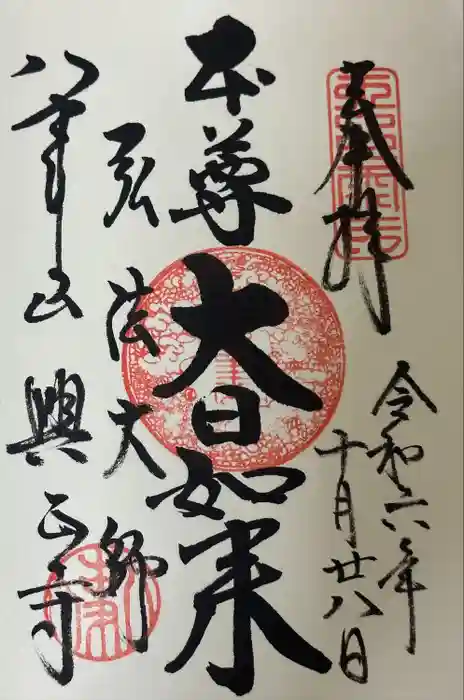 奉拝
令和六年
十月廿八日
本尊 大日如来
弘法大師
八事山 興正寺